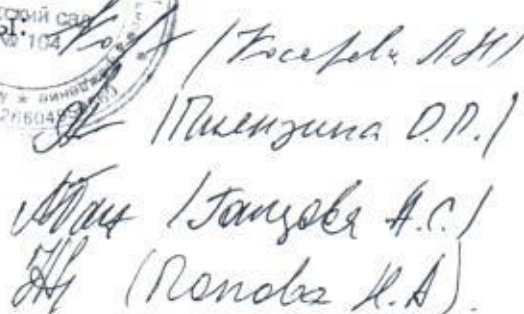 ский сад
№ 104
ы:
(Косарева Л.Н)
/Пиензина О.П./
/Ганцова А.С./
(Попова Н.А).